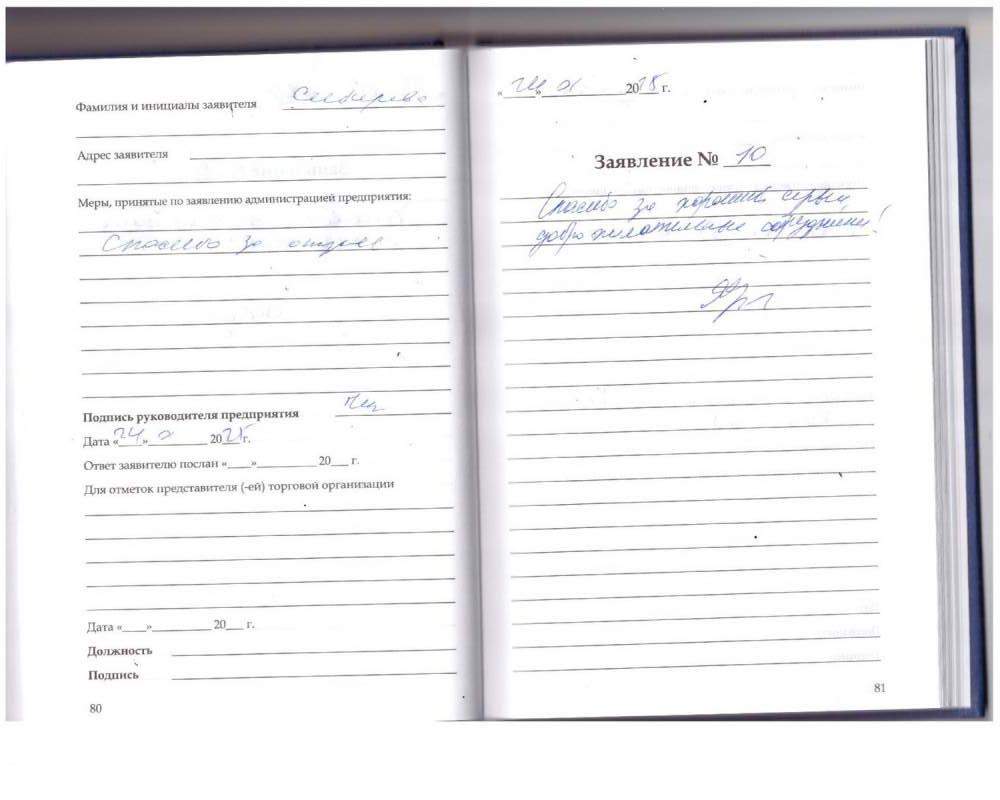 Фамилия и инициалы заявителя Сибирева
Адрес заявителя
Меры, принятые по заявлению администрацией предприятия:
Спасибо за отзыв
Подпись руководителя предприятия
Дата «24» 2025 г.
Ответ заявителю послан «____»__________ 20___ г.
Для отметок представителя (-ей) торговой организации
Дата «____»__________ 20___ г.
Должность
Подпись
80
«24» 2025 г.
Заявление № 10
Спасибо за хороший сервис,
доброжелательные сотрудники!
81